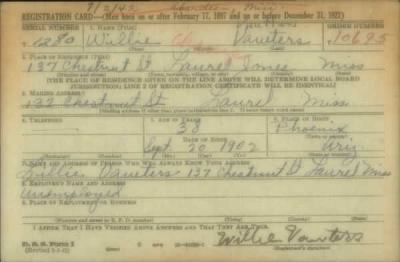 9/2/42
REGISTRATION CARD—(Men born on or after February 17, 1897 and on or before December 31, 1921)
SERIAL NUMBER 1. NAME (Print) ORDER NUMBER
Willie Vauters 10695
2. PLACE OF RESIDENCE (Print)
137 Chestnut St Laurel Jones Miss
(Number and street) (Town, township, village, or city) (County) (State)
[THE PLACE OF RESIDENCE GIVEN ON THE LINE ABOVE WILL DETERMINE LOCAL BOARD
JURISDICTION; LINE 2 OF REGISTRATION CERTIFICATE WILL BE IDENTICAL]
3. MAILING ADDRESS
137 Chestnut St Laurel Miss
4. TELEPHONE 5. AGE IN YEARS 6. PLACE OF BIRTH
38 Phoenix
DATE OF BIRTH
Sept 20 1902 Ariz
7. NAME AND ADDRESS OF PERSON WHO WILL ALWAYS KNOW YOUR ADDRESS
Vauters 137 Chestnut St Laurel Miss
8. EMPLOYER'S NAME AND ADDRESS
Unemployed
9. PLACE OF EMPLOYMENT OR BUSINESS
(Number and street or R. F. D. number) (Town) (County) (State)
I AFFIRM THAT I HAVE VERIFIED ABOVE ANSWERS AND THAT THEY ARE TRUE.
D. S. S. Form 1
Willie Vauters
(Registrant's signature)